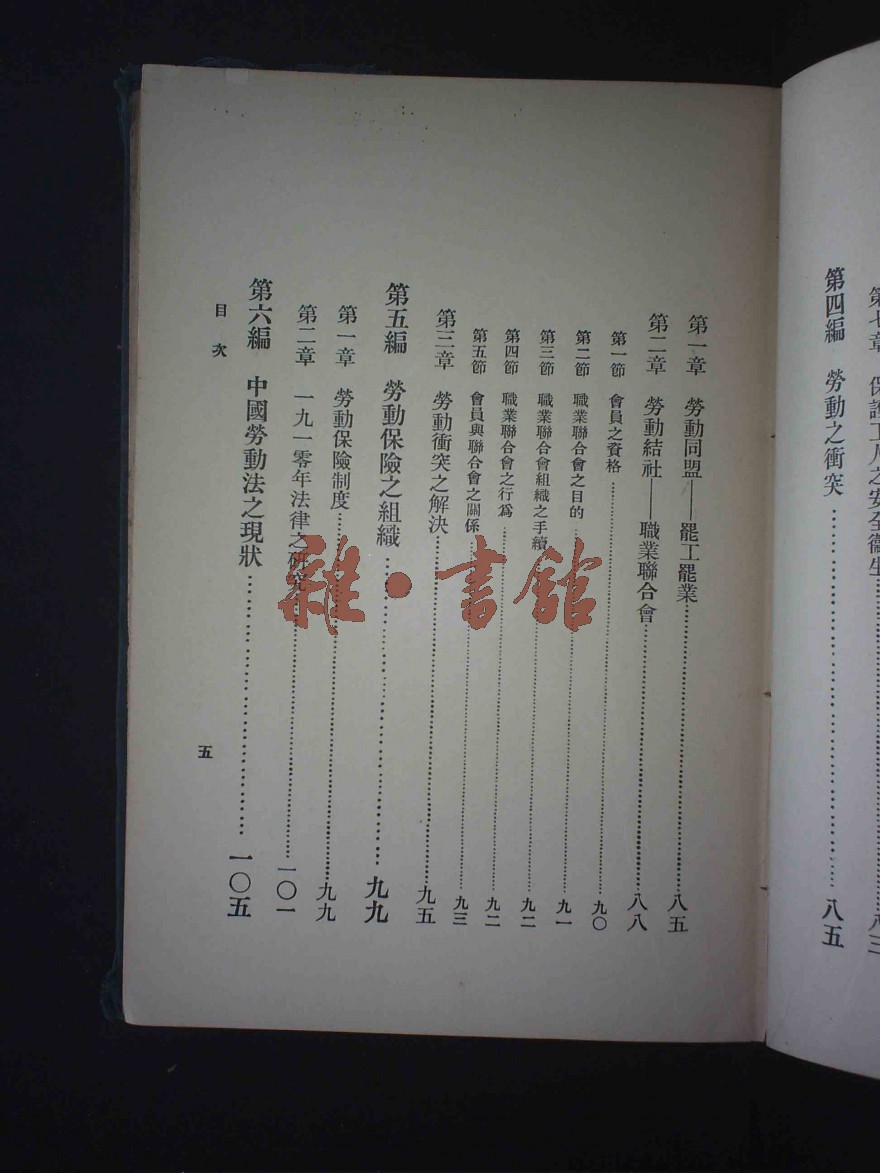 第七章　保護工人之安全衞生……八三
第四編　勞動之衝突……八五
第一章　勞動同盟——罷工罷業……八五
第二章　勞動結社——職業聯合會……八八
第一節　會員之資格……九〇
第二節　職業聯合會之目的……九一
第三節　職業聯合會組織之手續……九二
第四節　職業聯合會之行爲……九二
第五節　會員與聯合會之關係……九三
第三章　勞動衝突之解決……九五
第五編　勞動保險之組織……九九
第一章　勞動保險制度……九九
第二章　一九一零年法律之研究……一〇一
第六編　中國勞動法之現狀……一〇五
目次
五
雜·書館